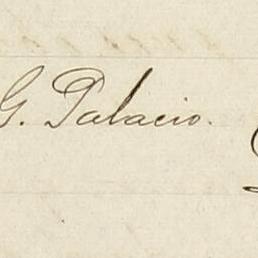 G. Palacio.